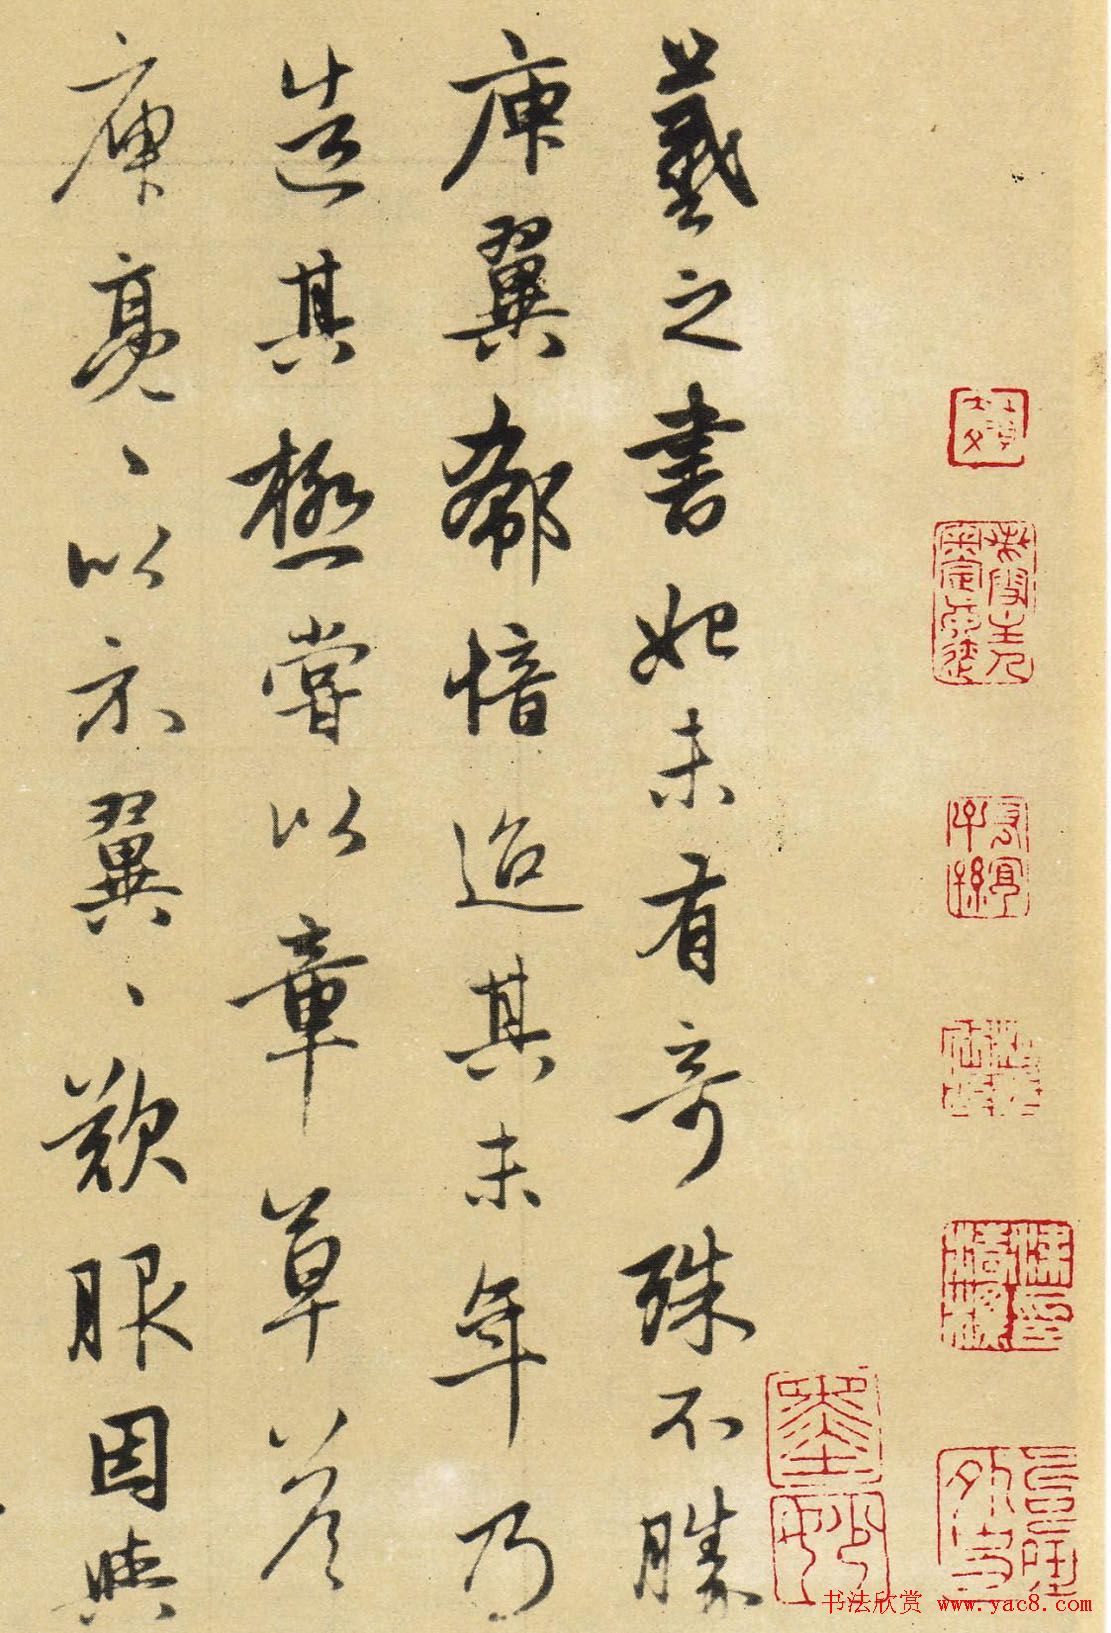 羲之書始未有奇殊不勝
庾翼郗愔迨其末年乃
造其極嘗以章草答
庾亮、以示翼、歎服因與
墨妙
书法欣赏 www.yac8.com